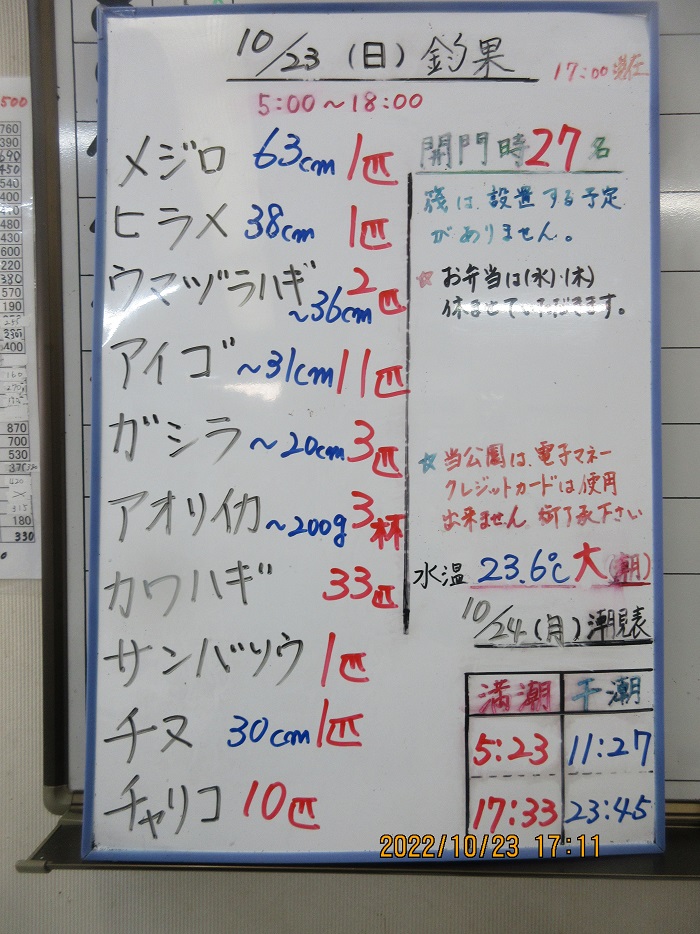 10/23 (日) 釣果
17:00 現在
5:00～18:00
メジロ 63cm 1匹
ヒラメ 38cm 1匹
ウマヅラハギ ～36cm 2匹
アイゴ ～31cm 11匹
ガシラ ～20cm 3匹
アオリイカ ～200g 3杯
カワハギ 33匹
サンバソウ 1匹
チヌ 30cm 1匹
チャリコ 10匹
開門時 27名
筏は、設置する予定
がありません。
☆お弁当は(水)・(木)
休ませていただきます。
☆当公園は、電子マネー
クレジットカードは使用
出来ません。御了承下さい
水温 23.6℃ 大(朝)
10/24 (月) 潮見表
満潮 干潮
5:23 11:27
17:33 23:45
2022/10/23 17:11
500
760
390
690
450
540
400
480
430
600
220
380
570
190
400
870
700
530
180
330